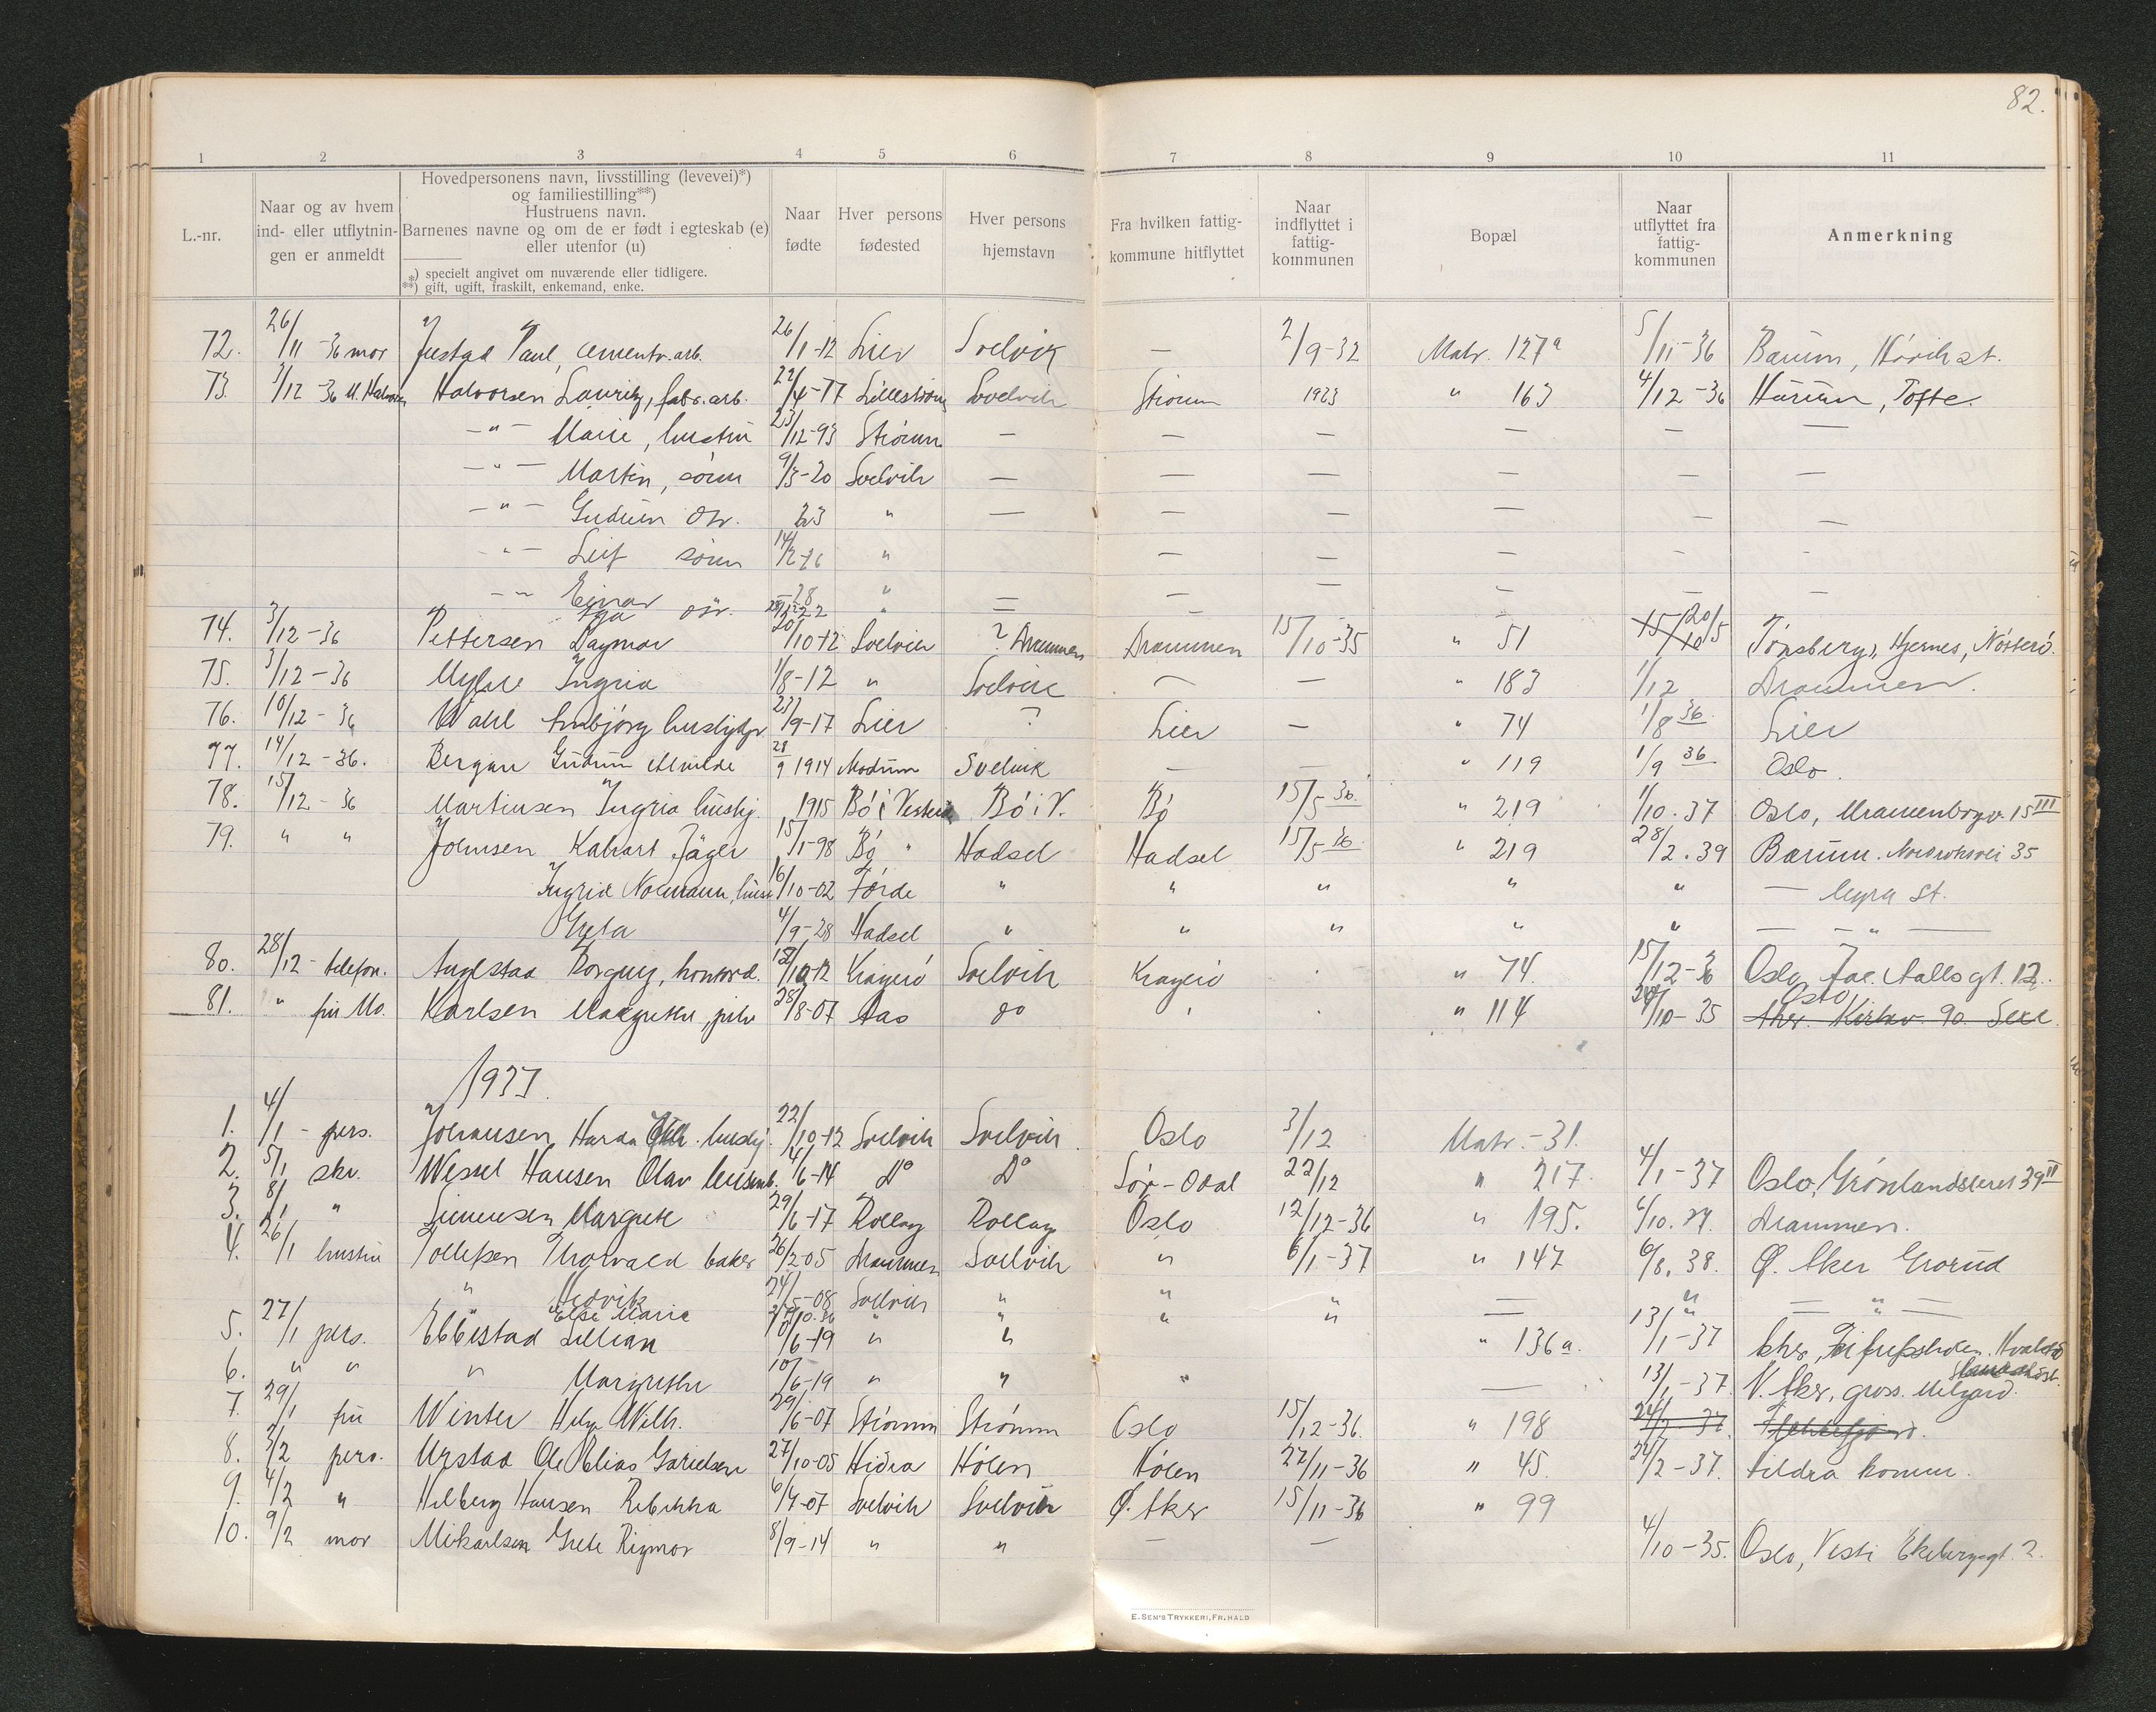 82.
1 2 3 4 5 6 7 8 9 10 11
L.-nr.
Naar og av hvem
ind- eller utflytnin-
gen er anmeldt
Hovedpersonens navn, livsstilling (levevei)*)
og familiestilling**)
Hustruens navn.
Barnenes navne og om de er født i egteskab (e)
eller utenfor (u)
*) specielt angivet om nuværende eller tidligere.
**) gift, ugift, fraskilt, enkemand, enke.
Naar
fødte
Hver persons
fødested
Hver persons
hjemstavn
Fra hvilken fattig-
kommune hitflyttet
Naar
indflyttet i
fattig-
kommunen
Bopæl
Naar
utflyttet fra
fattig-
kommunen
Anmerkning
72. 26/11 - 36 mor Justad Paul, cementv.arb. 26/1-12 Lier Svelvik — 2/9-32 Matr. 127a 5/11-36 Bærum, Høvik st.
73. /12 - 36 Halvorsen Lauritz, fabr. arb. 22/4-77 Lillestrøm Svelvik Strømm 1923 " 163 4/12-36 Hurum, Tofte.
-"- Marie, hustru 23/12-93 Strømm — — — — — —
-"- Martin, sønn 9/3-20 Svelvik — — — — — —
-"- Gudrun dtr. 23 " — — — — — —
-"- Leif sønn 14/2-26 " — — — — —
-"- Einar -28 " — — — — — —
dtr. 22 " —
74. 3/12-36 Pettersen Dagmar 20/10-12 Svelvik ? Drammen Drammen 15/10-35 " 51 15/10 20/5 Tønsberg, Hjernes, Nøtterø.
75. 3/12-36 Myhre Ingrid 1/8-12 " Svelvik — — " 183 1/12 Drammen.
76. 10/12-36 Wahl 23/9-17 Lier ? Lier — " 74 1/8 36 Lier
77. 14/12-36. Bergan Gudrun Alvilde 28/9 1914 Modum Svelvik — — " 119 1/9 36 Oslo.
78. 15/12-36 Martinsen Ingrid hushj. 1915 Bø i Bø i V. Bø 15/5 36 " 219 1/10.37 Oslo, 15 III
79. " " Johnsen Kalvart Jäger 15/1-98 Bø " Hadsel Hadsel 15/5 36 " 219 28/2.39 Bærum. 35
Ingrid Normann, 16/10-02 Førde " " " " " — st.
Greta 4/9-28 Hadsel " " " " " — - " —
80. 28/12 - telefon. Anglstad Borgny, kontord. /10-12 Kragerø Svelvik Kragerø . " 74. 15/12-36 Oslo, Jac. Aallsgt. 12.
81. " fru Mo. Karlsen Margrethe, 28/8-07 Aas do " 114 /10-35 Oslo Aker. Kirkev. 90.
1937.
1. 4/1 - pers. Johansen Harda hushj. 22/10-12 Svelvik Svelvik Oslo 3/12 Matr. - 31.
2. 5/1 skr. Wessel Hansen Olav 4/6-14 do do Sør-Odal 22/12 " 217. 4/1-37 Oslo, Grønlandsleret 39 II
3. 8/1 " Simensen Margrete 29/6-17 Rollag Rollag Oslo 12/12-36 " 195. 6/10. Drammen.
4. 26/1 hustru Tollefsen Thorvald baker 26/2-05 Drammen Svelvik " 6/1-37 " 147 6/8.38. Ø. Aker Grorud
" Hedvik 24/5-08 Svelvik " " " — " — " —
Else Marie /10.36 " " "
5. 27/1 pers. Ebbestad Lillian 10/6-19 " " " 136a. 13/1-37
6. " " " Margrethe 10/6-19 " " " — 13/1-37. V. Aker, gross.
7. 29/1 fru Winter Helga Wilh. 29/6-07 Strømm Strømm Oslo 15/12-36. " 198 24/2-37
8. 3/2 pers. Urstad Ole Elias 27/10-05 Hidra Hølen Hølen 27/11-36 " 45. 24/2-37. komm.
9. 4/2 " Hilberg Hansen Rebekka 6/4-07 Svelvik Svelvik Ø. Aker 15/11-36 " 99
10. 9/2 mor Mikarlsen Grete Rigmor 8/9-14 " " — — 4/10-35. Oslo, Vestre Ekebergsgt. 2.
E. SEM'S TRYKKERI, FR.HALD